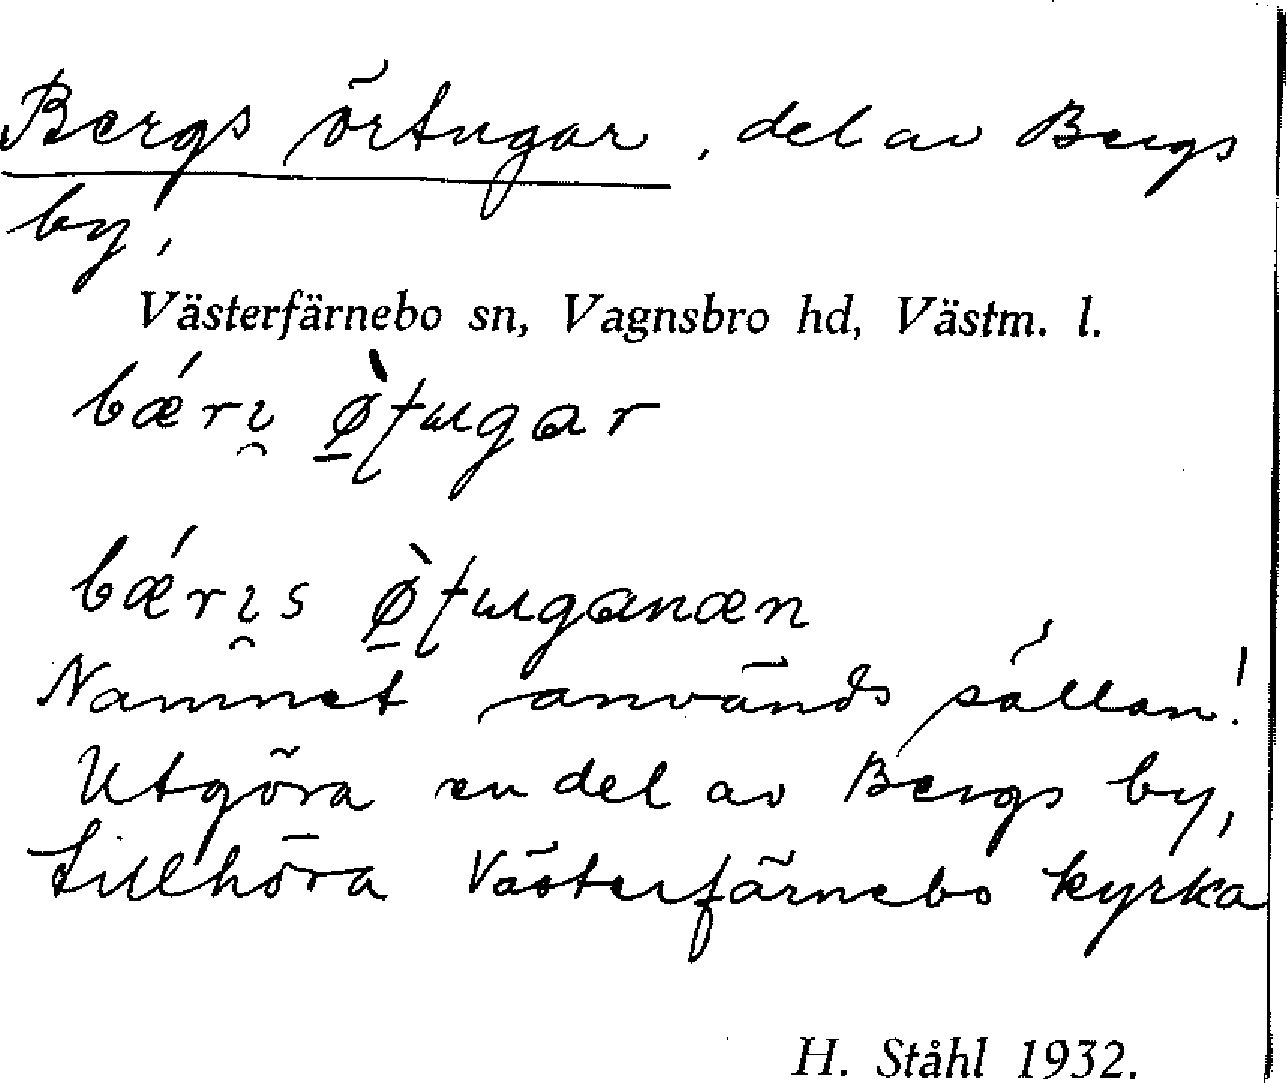 Bergs örtugar, del av Bergs
by,
Västerfärnebo sn, Vagnsbro hd, Västm. l.
Namnet användes sällan!
Utgöra en del av Bergs by,
tillhöra Västerfärnebo kyrka
H. Ståhl 1932.